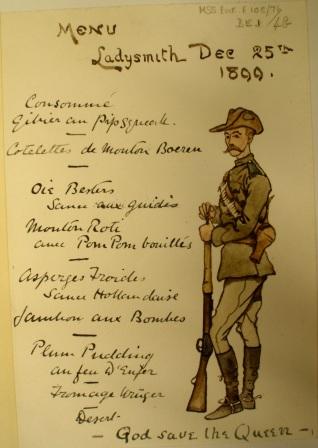 MSS Eur. F 108/76
48
Menu
Ladysmith Dec 25TH
1899.
Consommé
Gibier au Pipsqueak.
Cotelettes de Mouton Boeren
Oie Besters
Sauce aux guides
Mouton Roti
avec Pom Pom bouillés
Asperges Froides
Sauce Hollandaise
Jambon aux Bombes
Plum Pudding
au feu D'Enfer
Fromage Krüger
Desert-
- God save the Queen -